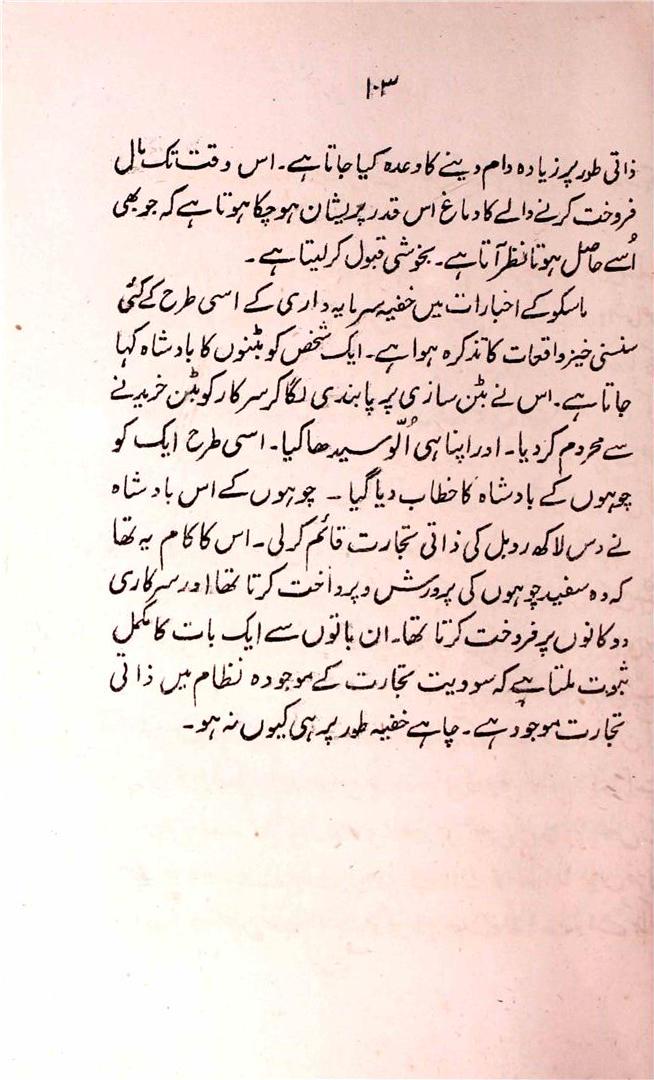 ۱۰۳
ذاتی طور پر زیادہ دام دینے کا وعدہ کیا جاتا ہے۔ اس وقت تک مال
فروخت کرنے والے کا دماغ اس قدر پریشان ہو چکا ہوتا ہے کہ جو بھی
اُسے حاصل ہوتا نظر آتا ہے۔ بخوشی قبول کر لیتا ہے۔
ماسکو کے اخبارات میں خفیہ سرمایہ داری کے اسی طرح کے کئی
سنسنی خیز واقعات کا تذکرہ ہوا ہے۔ ایک شخص کو بٹنوں کا بادشاہ کہا
جاتا ہے۔ اس نے بٹن سازی پر پابندی لگا کر سرکار کو بٹن خریدنے
سے محروم کر دیا۔ اور اپنا ہی اُلّو سیدھا کیا۔ اسی طرح ایک کو
چوہوں کے بادشاہ کا خطاب دیا گیا ۔ چوہوں کے اس بادشاہ
نے دس لاکھ روبل کی ذاتی تجارت قائم کر لی۔ اس کا کام یہ تھا
کہ وہ سفید چوہوں کی پرورش و پرداخت کرتا تھا اور سرکاری
دوکانوں پر فروخت کرتا تھا۔ ان باتوں سے ایک بات کا مکمل
ثبوت ملتا ہے کہ سوویت تجارت کے موجودہ نظام میں ذاتی
تجارت موجود ہے۔ چاہے خفیہ طور پر ہی کیوں نہ ہو۔